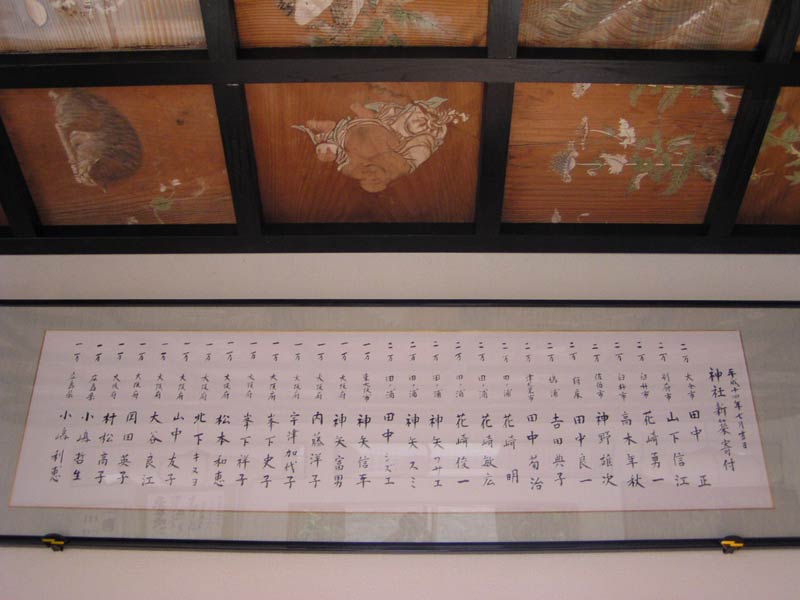 平成十四年七月吉日
神社新築寄付
二万 大分市 田中 正
二万 別府市 山下信江
二万 臼杵市 花崎勇一
二万 臼杵市 高木年秋
二万 佐伯市 神野雄次
二万 田中良一
二万 吉田典子
二万 津久見市 田中荀治
二万 田ノ浦 花崎 明
二万 田ノ浦 花崎敏宏
二万 田ノ浦 花崎俊一
二万 田ノ浦 神矢フサエ
二万 田ノ浦 神矢スミ
二万 田ノ浦 田中シズエ
一万 東大阪市 神矢信幸
一万 大阪府 神矢富男
一万 大阪府 内藤洋子
一万 大阪府 宇津加代子
一万 大阪府 峯下史子
一万 大阪府 峯下祥子
一万 大阪府 松本和恵
一万 大阪府 北下キスヨ
一万 大阪府 山中友子
一万 大阪府 大谷良江
一万 大阪府 岡田英子
一万 大阪府 村松高子
一万 広島県 小嶋哲生
一万 広島県 小嶋利恵